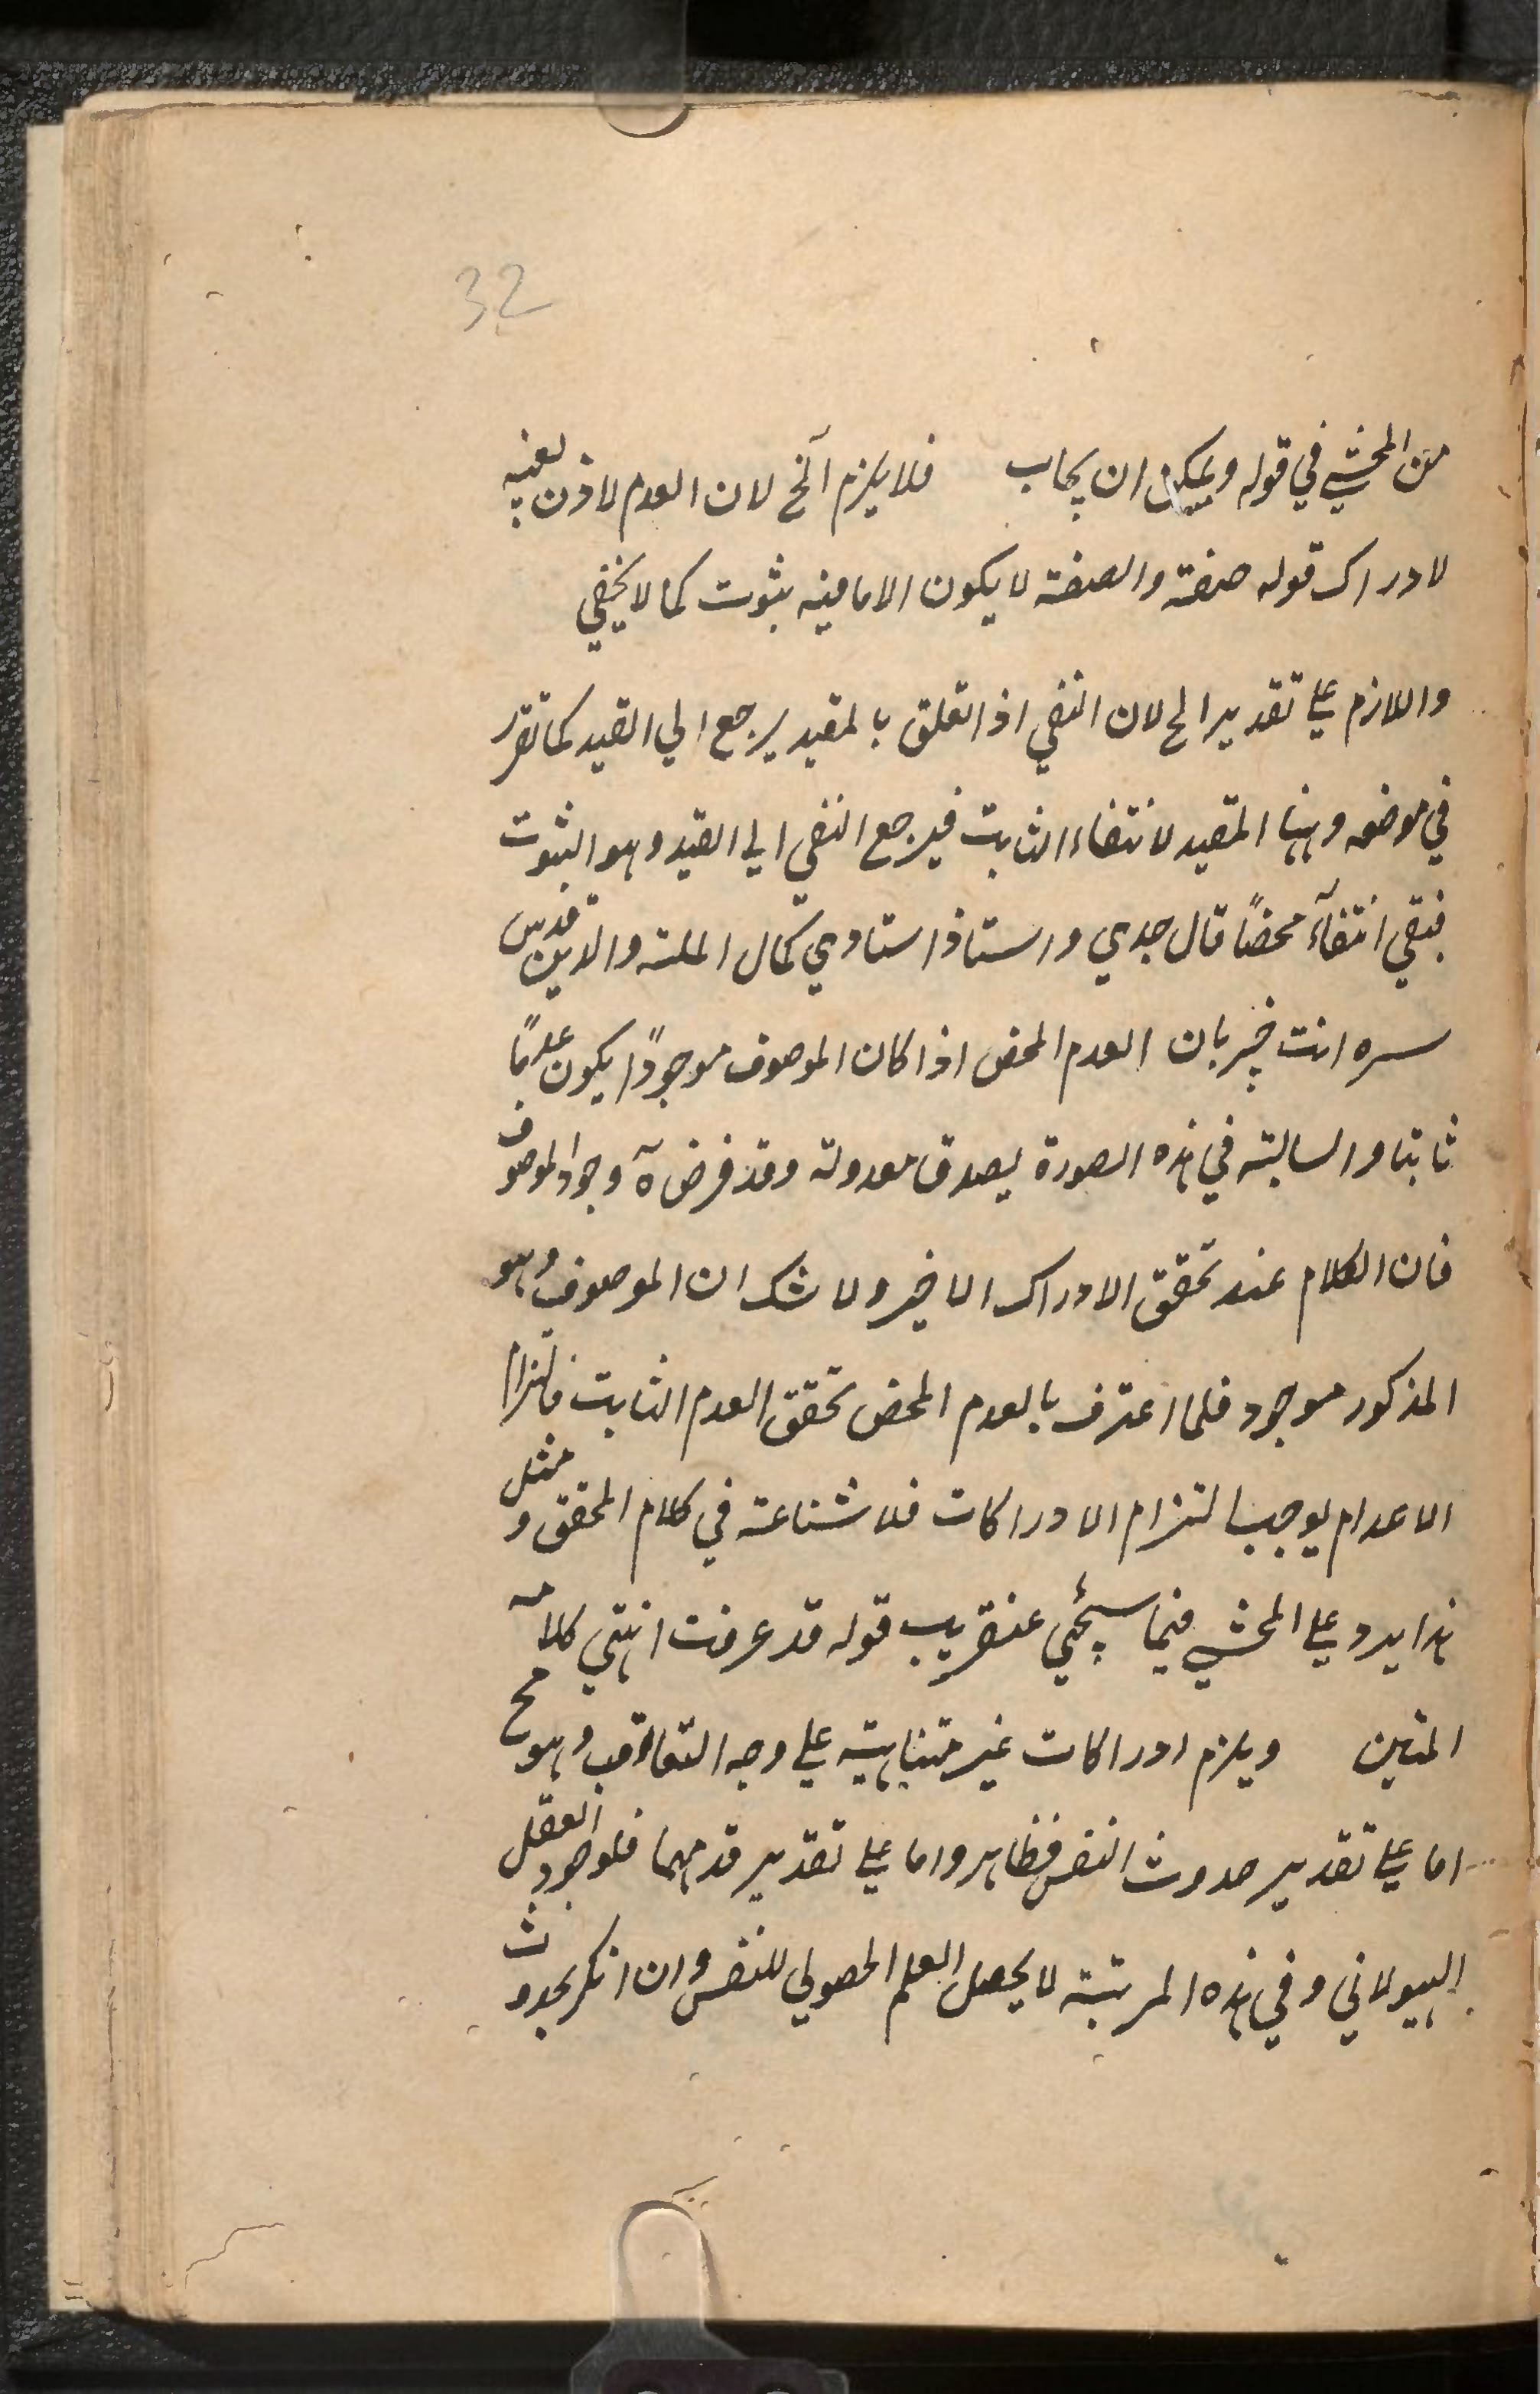 32
من المحشي في قوله ويمكن ان يجاب فلا يلزم آلخ لان العدم لاذن بعينه
لادراك قوله صفة والصفة لا يكون الا مافيه بثوت كما لا يخفي
واللازم علي تقدير الخ لان النفي اذا تعلق بالمقيد يرجع الي القيد كما تقرر
في موضعه وههنا المقيد لانتفاء الثابت فيرجع النفي الي القيد وهو الثبوت
فبقي انتفآء محضاً قال جدي واستاذ استاذي كمال الملة والدين قدس
سره انت خبير بان العدم المحض اذا كان الموصوف موجوداً يكون عدمًا
ثابتا والسالبة في هذه الصورة يصدق معدولة وقد فرض ه وجود الموصوف
فان الكلام عند تحقق الادراك الاخير ولا شك ان الموصوف وهو
المذكور موجود فلما اعترف بالعدم المحض تحقق العدم الثابت فالتزام
الاعدام يوجب التزام الادراكات فلا شناعة في كلام المحقق و مثل
هذا يرد علي المحشي فيما سيجئي عنقريب قوله قد عرفت انتهي كلامه
المتين ويلزم ادراكات غير متناهية علي وجه التعاقب وهو مح
اما علي تقدير حدوث النفس فظاهر واما علي تقدير قدمهما فلوجود العقل
الهيولاني وفي هذه المرتبة لا يحصل العلم الحصولي للنفس وان انكر بحدوث